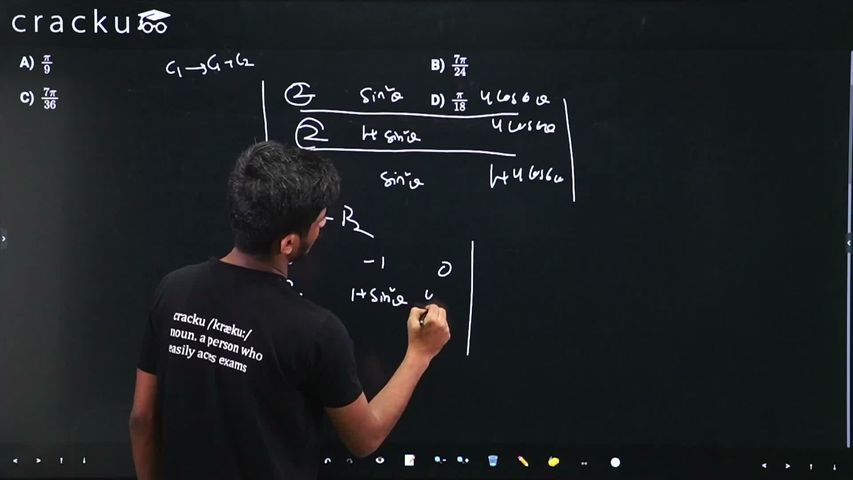 cracku
A) π/9
B) 7π/24
C) 7π/36
D) π/18
C₁ → C₁ + C₂
2 sin²θ 4 cos 6θ
2 1+ sin²θ 4 cos 6θ
sin²θ 1+ 4 cos 6θ
- R₂
-1 0
1+ sin²θ
cracku /kræku:/
noun. a person who
easily aces exams